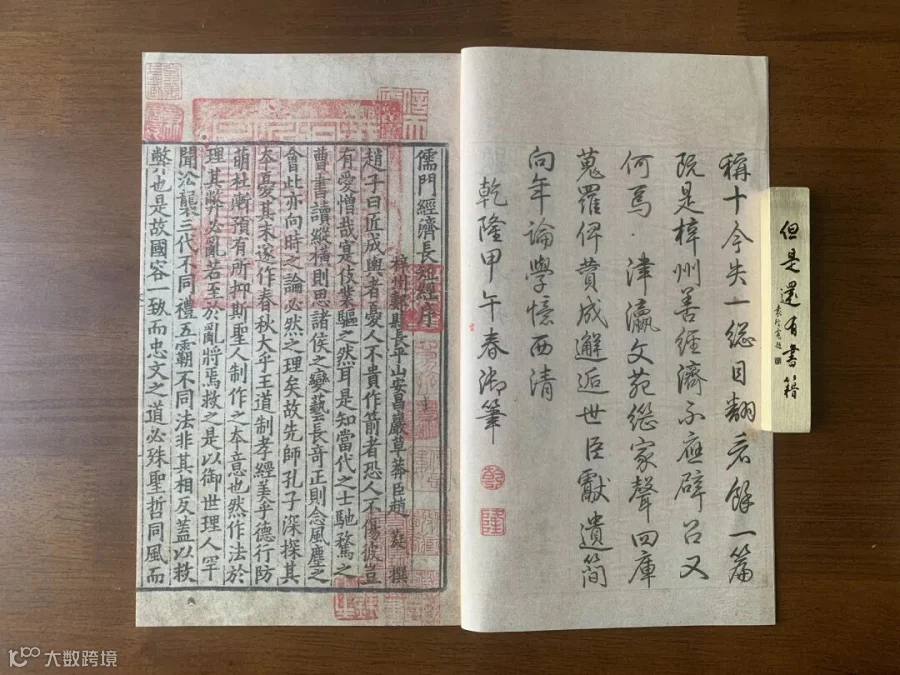 但是還有書籍
稱十今失一總目翻餘一篇
既是梓州善經濟不應辟召又
何焉津瀛文苑継家聲四庫
蒐羅俾贊成邂逅世臣獻遺簡
向年論學憶西清
乾隆甲午春御筆
乾
隆
儒門經濟長短經序
梓州郪縣長平山安昌巖草莽臣趙蕤撰
趙子曰匠成輿者憂人不貴作箭者恐人不傷彼豈
有愛憎哉寔伎業驅之然耳是知當代之士馳騖之
曹書讀縱橫則思諸侯之變藝長奇正則念風塵之
會此亦向時之論必然之理矣故先師孔子深探其
本憂其末遂作春秋大乎王道制孝經美乎德行防
萌杜漸預有所抑斯聖人制作之本意也然作法於
理其弊必亂若至於亂將焉救之是以御世理人罕
聞㳂襲三代不同禮五霸不同法非其相反蓋以救
弊也是故國容一致而忠文之道必殊聖哲同風而
大数跨境